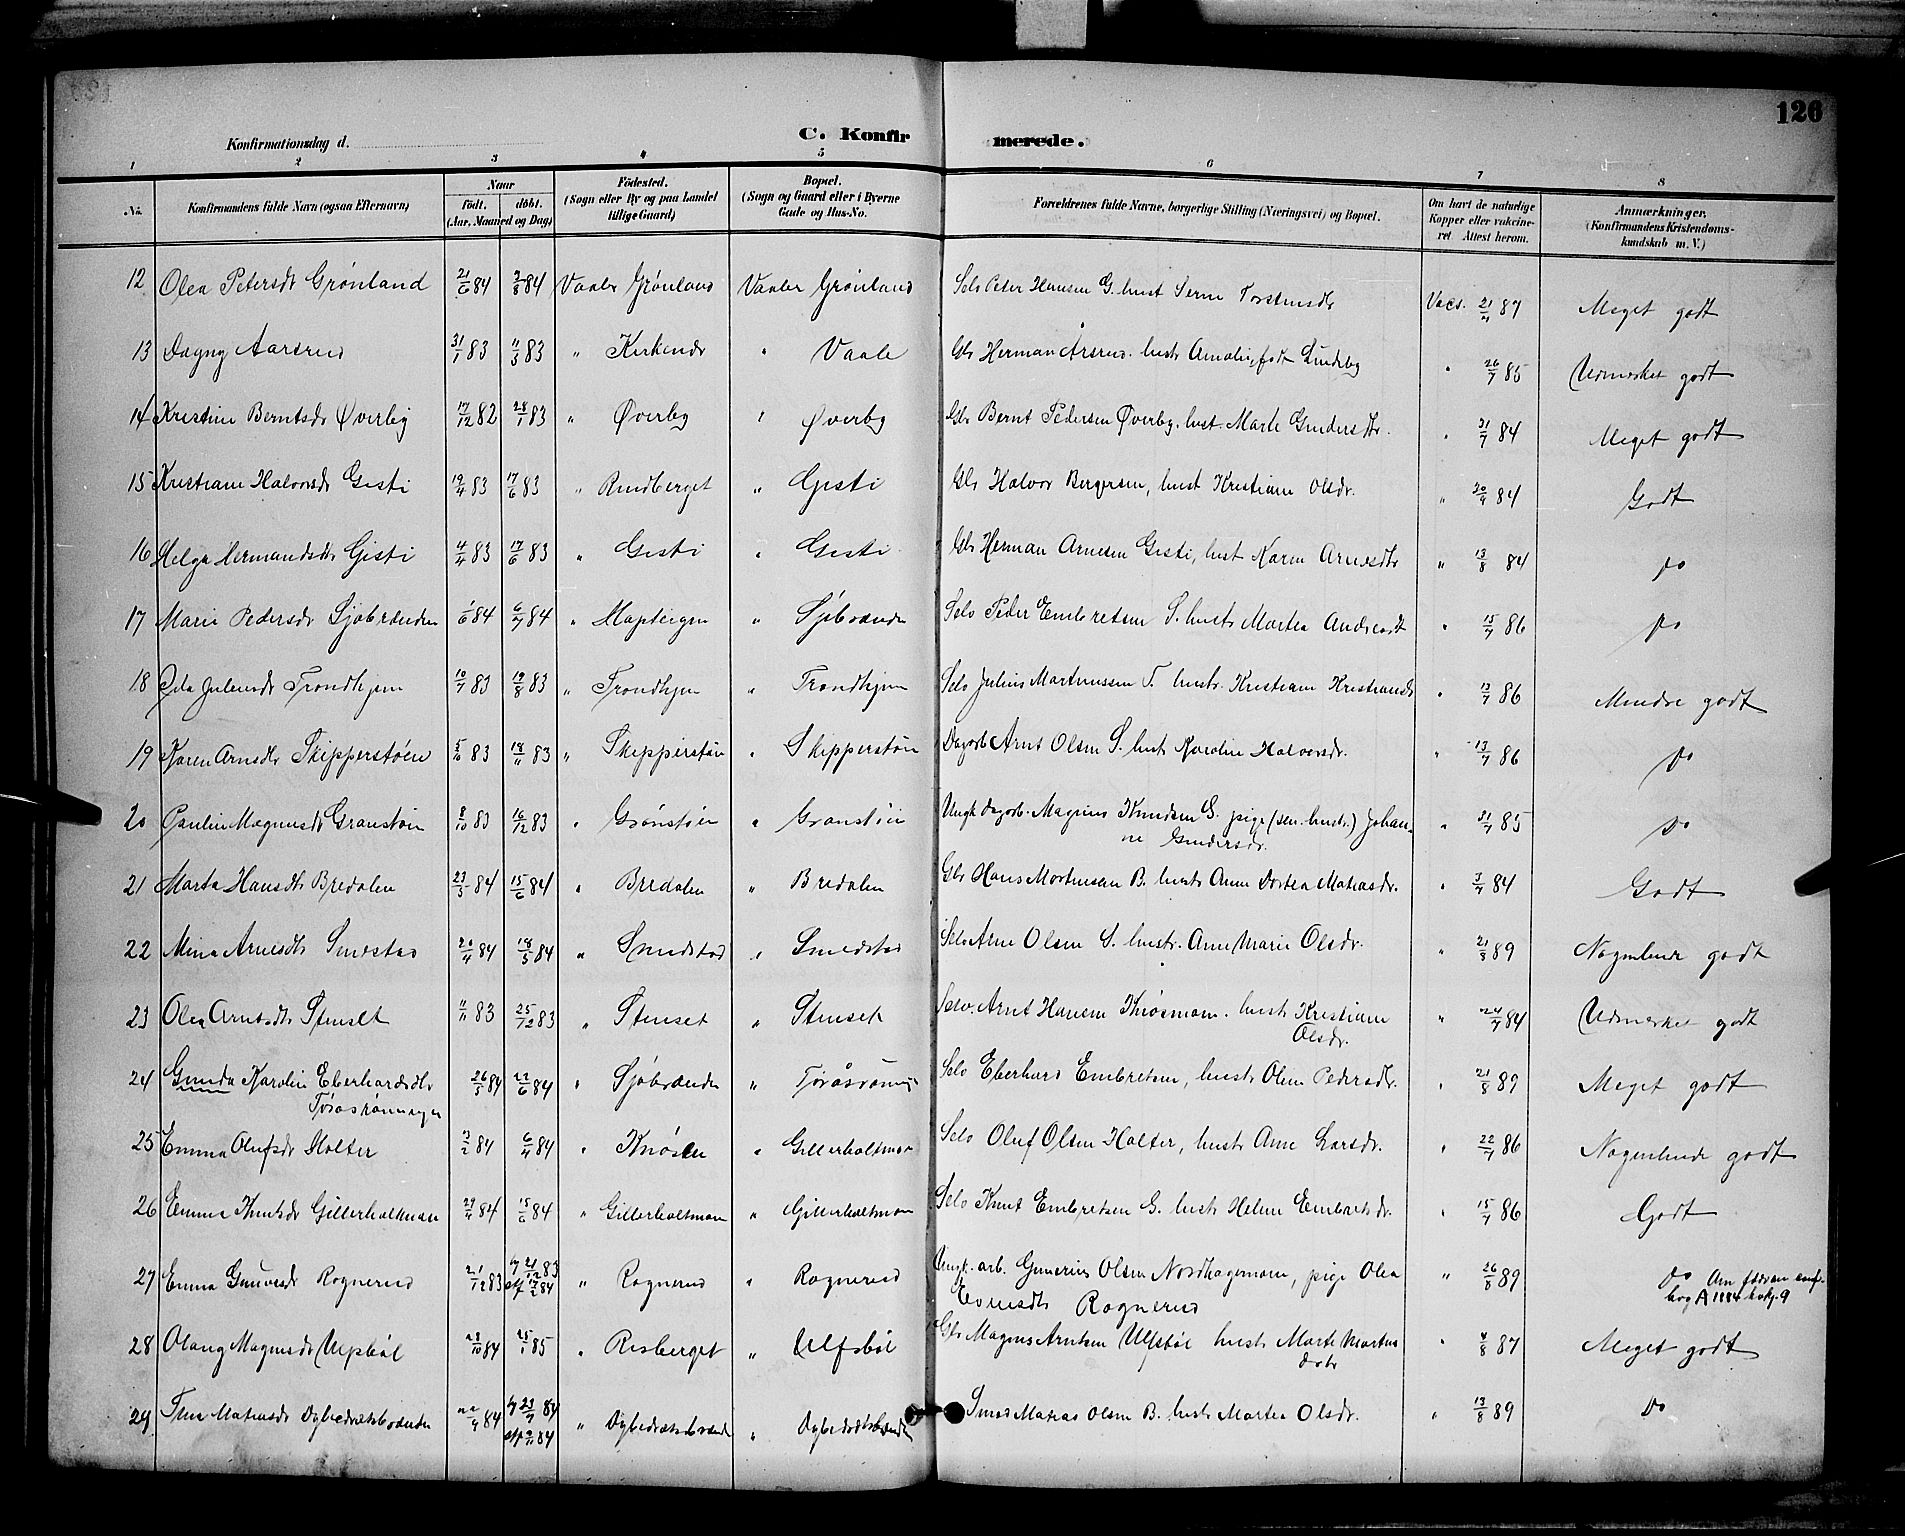 126
Konfirmationsdag d.
C. Konfirmerede.
1 2 3 4 5 6 7 8
No. Konfirmandens fulde Navn (ogsaa Efternavn) Naar født. døbt. (Aar, Maaned og Dag) Fødested. (Sogn eller By og paa Landet tillige Gaard) Bopæl. (Sogn og Gaard eller i Byerne Gade og Hus-No. Forældrenes fulde Navne, borgerlige Stilling (Næringsvei) og Bopæl. Om havt de naturlige Kopper eller vakcineret Attest herom. Anmærkninger. (Konfirmandens Kristendomskundskab m. V.)
12 Olea Petersdr Grønland 21/6 84 3/8 84 Vaaler Grønland Vaaler Grønland Selv Peter Hansen G. hust Serine Torstensdr Vacs. 21/11 87 Meget godt
13 Dagny Aarsrud 31/1 83 11/3 83 " Kirkendr " Vaale Gbr Herman Arsrud. hustr Amalie, født Lundeby " 26/7 85 Udmerket godt
14 Kristine Berntsdr Øverby 17/12 82 28/1 83 " Øverby " Øverby Gbr Bernt Pedersen Øverby, hust. Marte Gundersdtr. " 31/7 84 Meget godt
15 Kristiane Halvorsdr Gisti 19/4 83 17/6 83 " Rundberget " Gisti Gbr Halvor Bergersen, hust Kristiane Olsdr. " 30/9 84 Godt
16 Helga Hermandsdtr Gisti 4/4 83 17/6 83 " Gisti " Gisti Gbr Herman Arnesen Gisti, hust Karen Arnesdtr " 13/8 84 Do
17 Marie Pedersdr Sjøbrænden 1/6 84 6/7 84 " Hapteigen " Sjøbrænden Selv Peder Embretsen S. hustr Martea Andreasdt " 15/7 86 Do
18 Ida Juliusdr Trondhjem 10/7 83 19/8 83 " Trondhjem " Trondhjem Selv Julius Martinussen T. hustr. Kristiane Kristiansdr " 13/7 86 Mindre godt
19 Karen Arnsdtr Skipperstøen 5/10 83 18/11 83 " Skipperstøen " Skipperstøen Dagarb Arnt Olsen S. hustr Karoline Halvorsdr. " 13/7 86 Do
20 Pauline Magnusdr Granstøen 8/10 83 16/12 83 " Grønstøen " Granstøen Ungk dagarb. Magnus Knudsen G. pige (sen. hustr.) Johanne Gundersdr. " 31/7 85 Do
21 Marta Hansdtr Bredalen 23/3 84 15/6 84 " Bredalen " Bredalen Gbr Hans Mortensen B. hustr Anne Dortea Matiasdr. " 3/7 84 Godt
22 Mina Arnesdtr Smestad 20/4 84 18/5 84 " Smedstad " Smedstad Selv Arne Olsen S. hustr. Anne Marie Olsdr. " 21/8 89 Nogenlunde godt
23 Olea Arntsdtr Stenset 11/11 83 25/12 83 " Stenset " Stenset Selv. Arnt Hansen Knøsmoen. hustr Kristiane Olsdr. " 24/7 84 Udmerket godt
24 Gunda Karoline Eberhardsdtr Tøråsrønningen 26/5 84 22/6 84 " Sjøbrænden " Tøråsrønning Selv Eberhard Embretsen, hustr Oline Pedersdtr. " 21/8 89 Meget godt
25 Emma Olufsdr Holter 3/2 84 6/4 84 " Knøsen " Gillerholtmoen Selv Oluf Olsen Holter, hustr Anne Larsdr. " 22/7 86 Nogenlunde godt
26 Emma Knutsdr Gillerholtmoen 29/4 84 15/6 84 " Gillerholtmoen " Gillerholtmoen Selv Knut Embretsen G. hustr Helene Embretsdr. " 15/7 86 Godt
27 Emma Gunersdr Rognerud 21/12 83 hj 21/12 83 stf 17/2 84 " Rognerud " Rognerud Ungk. arb. Gunerius Olsen Nordhagemoen, pige Olea Evensdtr Rognerud " 26/8 89 Do
bog A 1884
28 Olaug Magnusdr Ulfsbøl 23/10 84 25/1 85 " Risberget " Ulfsbøl Gbr Magnus Arntsen Ulfsbøl hustr Marte Martinsdotr " 4/8 87 Meget godt
29 Matiasdr Dybedætsbrænden 84 hj 23/9 84 stf 9/11 84 " Dybedætsbrænden " Dybedætsbrænden Smed Matias Olsen B. hustr Martea Olsdr. " 13/8 89 Do